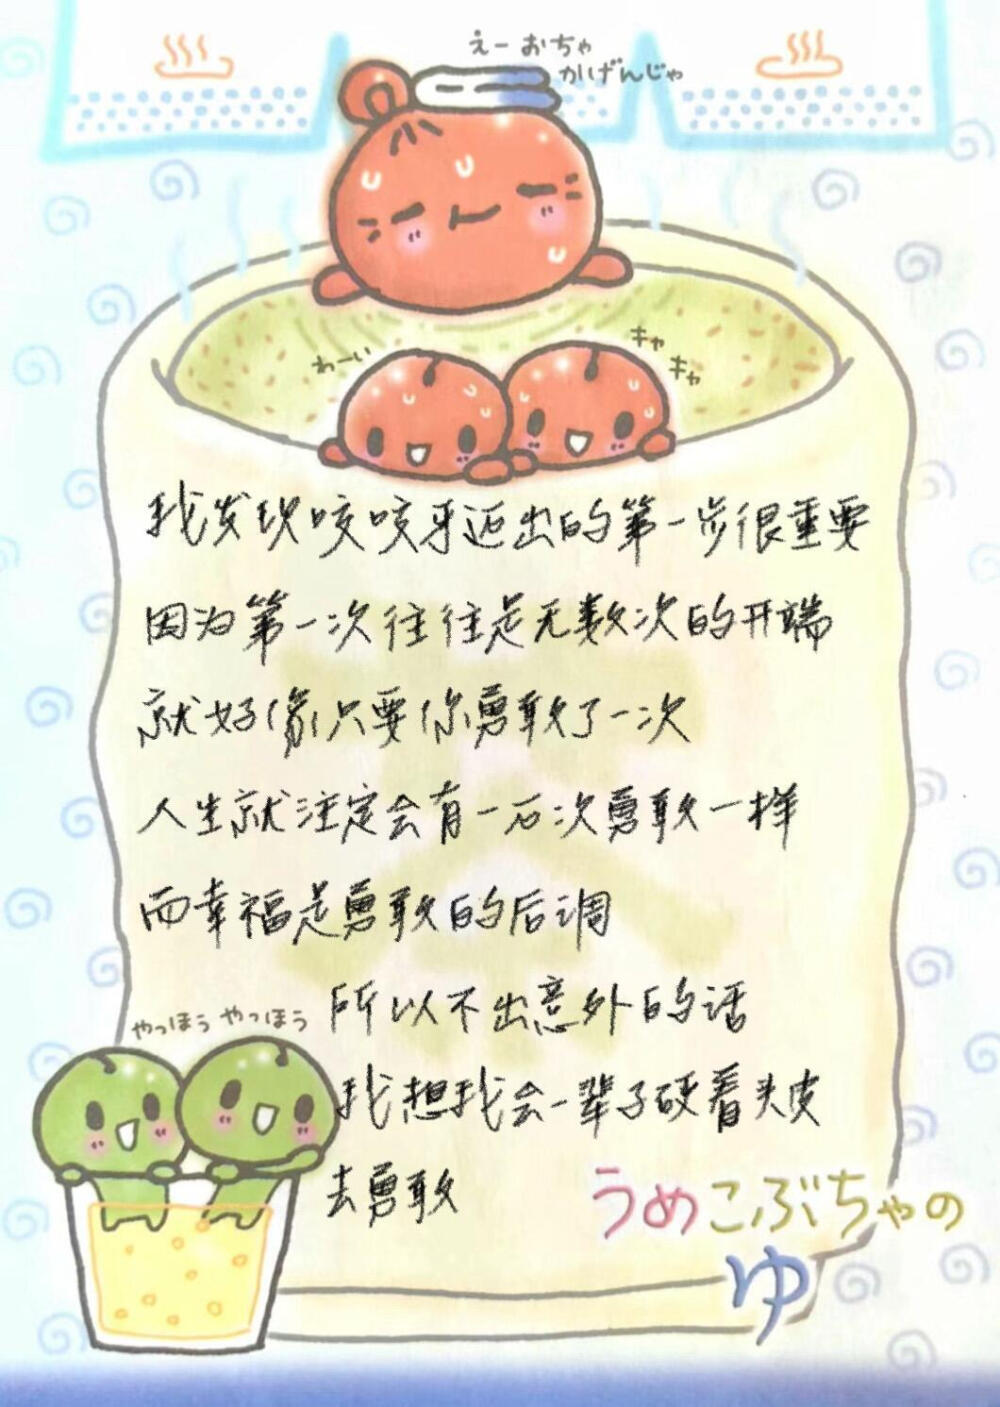 えーおちゃ
かげんじゃ
わーい
キャ
キャ
我发现咬咬牙迈出的第一步很重要
因为第一次往往是无数次的开端
就好像只要你勇敢了一次
人生就注定会有一百次勇敢一样
而幸福是勇敢的后调
所以不出意外的话
我想我会一辈子硬着头皮
去勇敢
やっほう やっほう
うめこぶちゃの
ゆ